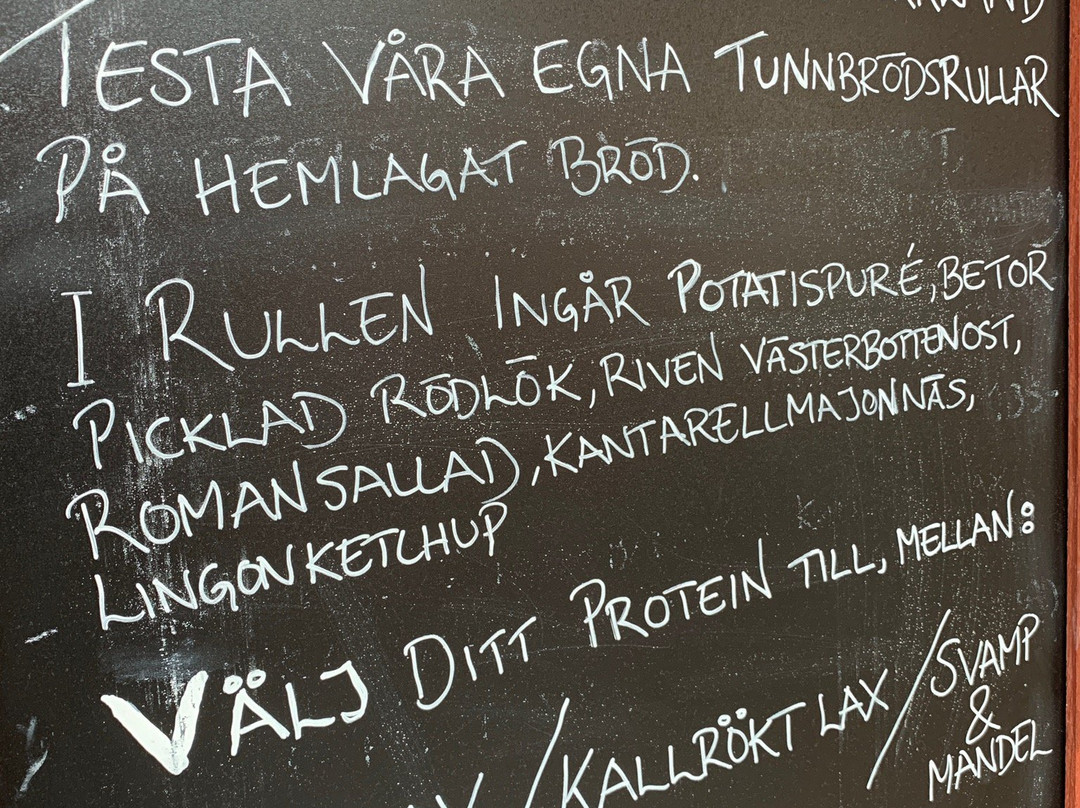 TESTA VÅRA EGNA TUNNBRÖDSRULLAR
PÅ HEMLAGAT BRÖD.
I RULLEN INGÅR POTATISPURÉ, BETOR
PICKLAD RÖDLÖK, RIVEN VÄSTERBOTTENOST,
ROMANSALLAD, KANTARELLMAJONNÄS,
LINGONKETCHUP
VÄLJ DITT PROTEIN TILL, MELLAN:
/ KALLRÖKT LAX / SVAMP
&
MANDEL